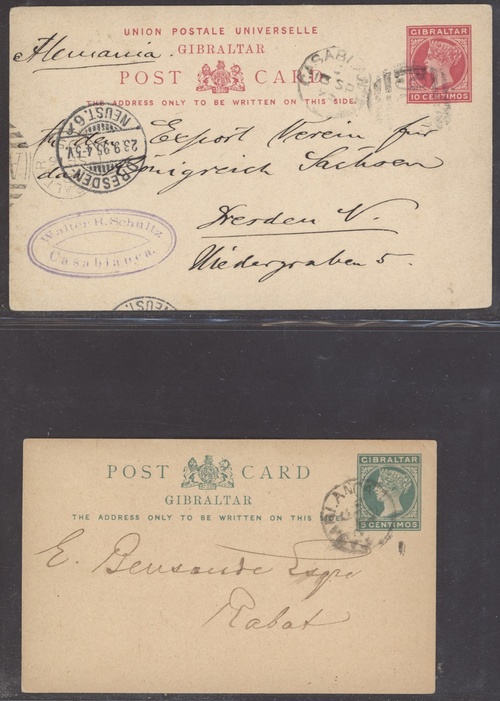 UNION POSTALE UNIVERSELLE
Alemania.
GIBRALTAR
POST CARD
THE ADDRESS ONLY TO BE WRITTEN ON THIS SIDE.
GIBRALTAR
10 CENTIMOS
CASABLANCA
DRESDEN NEUST. 6
23.9.95.4-5V
Export Verein für
das Königreich Sachsen
Dresden N.
Niedergraben 5.
Walter R. Schultz
Casablanca.
NEUST.
POST CARD
GIBRALTAR
THE ADDRESS ONLY TO BE WRITTEN ON THIS
GIBRALTAR
5 CENTIMOS
CASABLANCA
E. Bensaude Esqre
Rabat